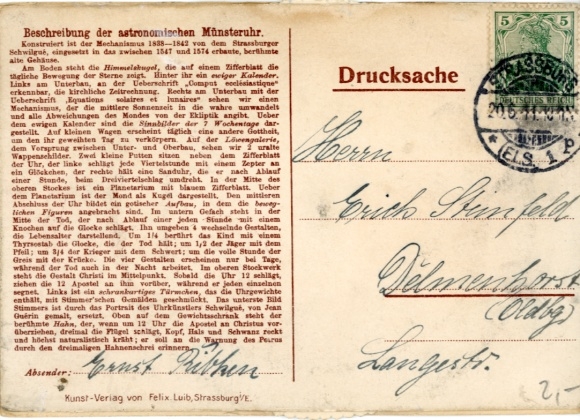 Beschreibung der astronomischen Münsteruhr.
Konstruiert ist der Mechanismus 1838—1842 von dem Strassburger
Schwilgué, eingesetzt in das zwischen 1547 und 1574 erbaute, berühmte
alte Gehäuse.
Am Boden steht die Himmelskugel, die auf einem Zifferblatt die
tägliche Bewegung der Sterne zeigt. Hinter ihr ein ewiger Kalender.
Links am Unterbau, an der Ueberschrift „Comput ecclésiastique"
erkennbar, die kirchliche Zeitrechnung. Rechts am Unterbau mit der
Ueberschrift „Equations solaires et lunaires" sehen wir einen
Mechanismus, der die mittlere Sonnenzeit in die wahre umwandelt
und alle Abweichungen des Mondes von der Ekliptik angibt. Ueber
dem ewigen Kalender sind die Sinnbilder der 7 Wochentage dar-
gestellt. Auf kleinen Wagen erscheint täglich eine andere Gottheit,
um den ihr geweihten Tag zu verkörpern. Auf der Löwengalerie,
dem Vorsprung zwischen Unter- und Oberbau, sehen wir 2 uralte
Wappenschilder. Zwei kleine Putten sitzen neben dem Zifferblatt
der Uhr, der links schlägt jede Viertelstunde mit einem Zepter an
ein Glöckchen, der rechts hält eine Sanduhr, die er nach Ablauf
einer Stunde, beim Dreiviertelschlag umdreht. In der Mitte des
oberen Stockes ist ein Planetarium mit blauem Zifferblatt. Ueber
dem Planetarium ist der Mond als Kugel dargestellt. Den mittleren
Abschluss der Uhr bildet ein gotischer Aufbau, in dem die beweg-
lichen Figuren angebracht sind. Im untern Gefach steht in der
Mitte der Tod, der nach Ablauf einer jeden Stunde mit einem
Knochen auf die Glocke schlägt. Ihn umgeben 4 wechselnde Gestalten,
die Lebensalter darstellend. Um 1/4 berührt das Kind mit einem
Thyrsostab die Glocke, die der Tod hält; um 1/2 der Jäger mit dem
Pfeil; um 3/4 der Krieger mit dem Schwert; um die volle Stunde der
Greis mit der Krücke. Die vier Gestalten erscheinen nur bei Tage,
während der Tod auch in der Nacht arbeitet. Im oberen Stockwerk
steht die Gestalt Christi im Mittelpunkt. Sobald die Uhr 12 schlägt,
ziehen die 12 Apostel an ihm vorüber, während er jeden einzelnen
segnet. Links ist ein schrankartiges Türmchen, das die Uhrgewichte
enthält, mit Stimmer'schen Gemälden geschmückt. Das unterste Bild
Stimmers ist durch das Portrait des Uhrkünstlers Schwilgué, von Jean
Guérin gemalt, ersetzt. Oben auf dem Gewichtsschrank steht der
berühmte Hahn, der, wenn um 12 Uhr die Apostel an Christus vor-
überziehen, dreimal die Flügel schlägt, Kopf, Hals und Schwanz reckt
und höchst naturalistisch kräht; er soll an die Warnung des Petrus
durch den dreimaligen Hahnenschrei erinnern.
Absender: Ernst
Kunst-Verlag von Felix Luib, Strassburg i/E.
Drucksache
5 5
DEUTSCHES REICH
STRASSBURG
* (ELS.) 1 P
Herrn
Erich
Delmenhorst
(Oldbg)
Langestr.
2,-